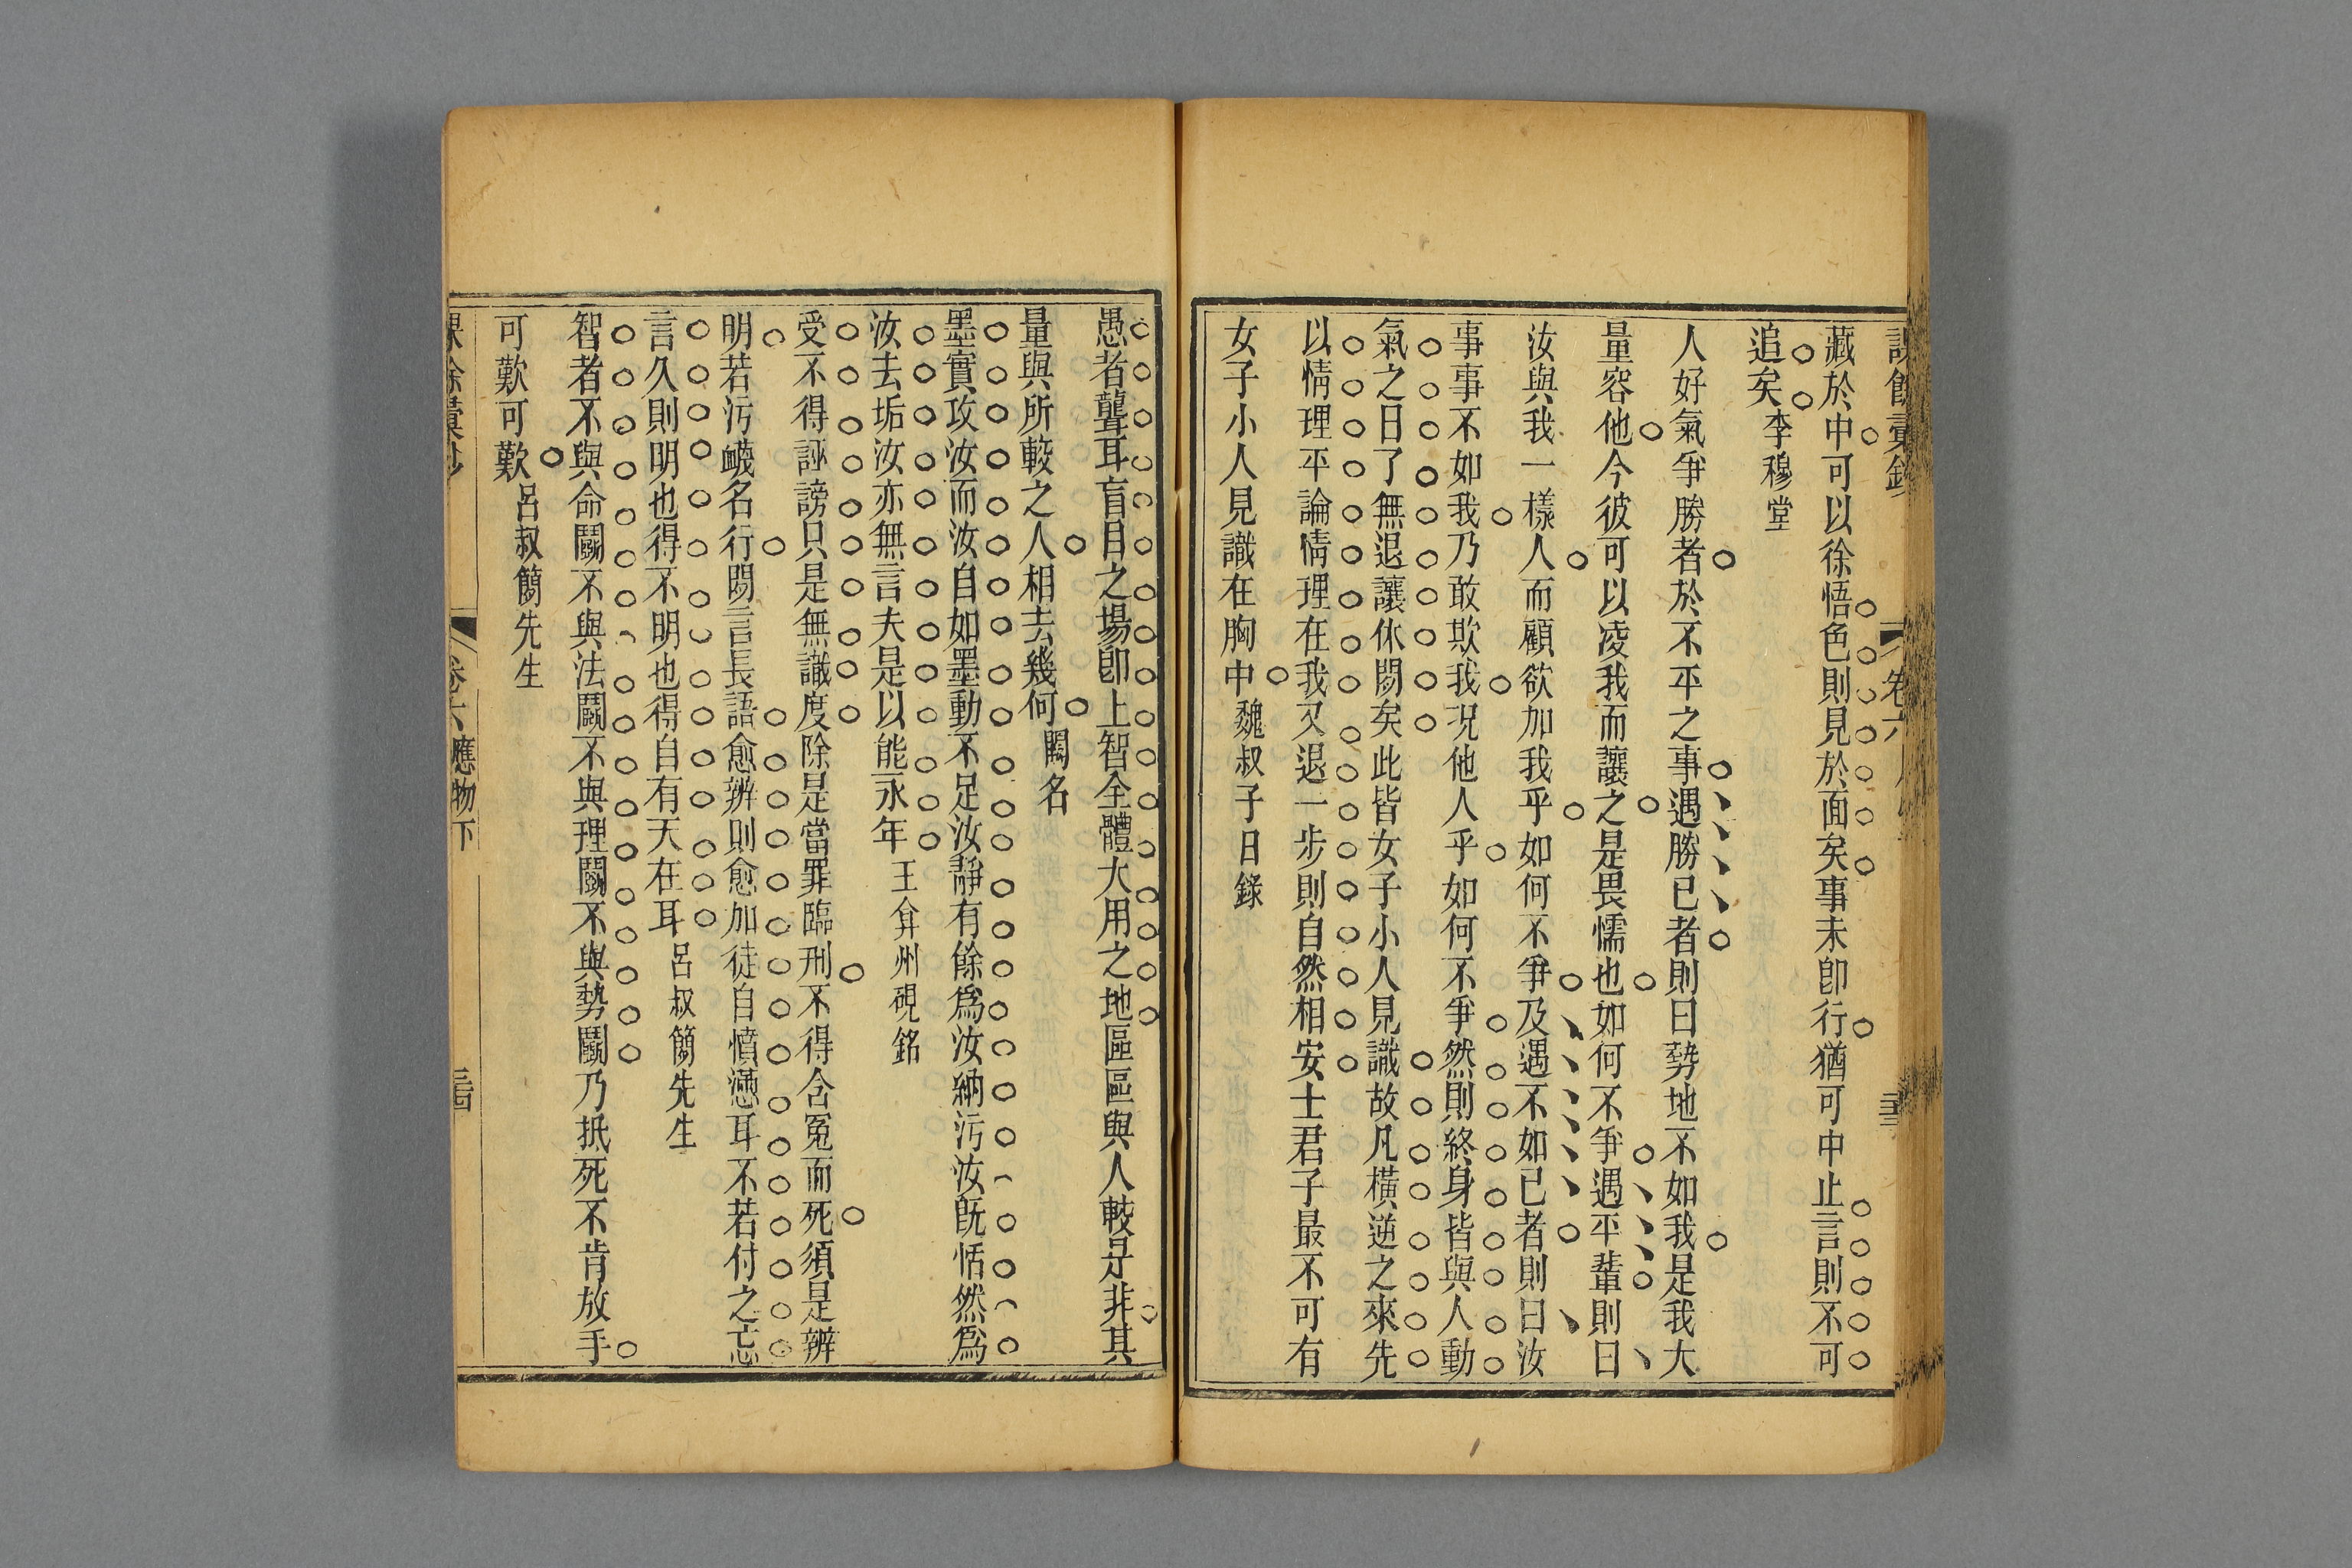 卷六
三三
藏於中可以徐悟色則見於面矣事未卽行猶可中止言則不可
追矣李穆堂
人好氣爭勝者於不平之事遇勝已者則曰勢地不如我是我大
量容他今彼可以凌我而讓之是畏懦也如何不爭遇平輩則曰
汝與我一樣人而顧欲加我乎如何不爭及遇不如已者則曰汝
事事不如我乃敢欺我況他人乎如何不爭然則終身皆與人動
氣之日了無退讓休閒矣此皆女子小人見識故凡橫逆之來先
以情理平論情理在我又退一步則自然相安士君子最不可有
女子小人見識在胸中魏叔子日錄
愚者聾耳盲目之場卽上智全體大用之地區區與人較是非其
量與所較之人相去幾何闕名
墨實攻汝而汝自如墨動不足汝靜有餘爲汝納污汝旣恬然爲
汝去垢汝亦無言夫是以能永年王弇州硯銘
受不得誣謗只是無識度除是當罪臨刑不得含冤而死須是辨
明若污衊名行閒言長語愈辨則愈加徒自憤懣耳不若付之忘
言久則明也得不明也得自有天在耳呂叔簡先生
智者不與命鬭不與法鬭不與理鬭不與勢鬭乃抵死不肯放手
可歎可歎呂叔簡先生
卷六應物下
三四